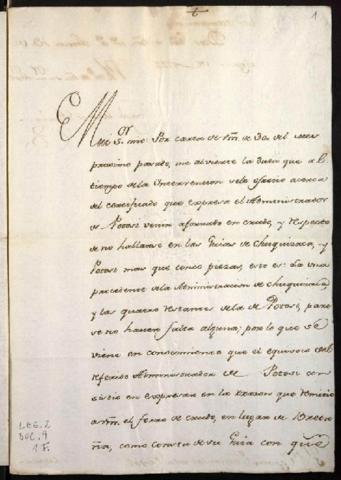 1
Muy S.r mio: Por carta de Vm. de 30. del mes
proximo pasado, me advierte la duda que al
tiempo de la Intervencion se le ofrecio acerca
del certificado que expresa el Administrador
de Potosi venia aforrado en crudo, y respecto
de no hallarse en las Guias de Chuquisaca, y
Potosi mas que cinco piezas, esto es: La una
procedente de la Administracion de Chuquisaca,
y las quatro restantes de la de Potosi, pare
se no haver falta alguna; por lo que se
viene en conocimiento que el equivoco del
referido Administrador de Potosi con
sistio en expresar en la razon que remitio
a Vm. el forro de crudo, en lugar de Breta
ña, como consta de su Guia con que
LEG. 2
DOC. 9
1 F.